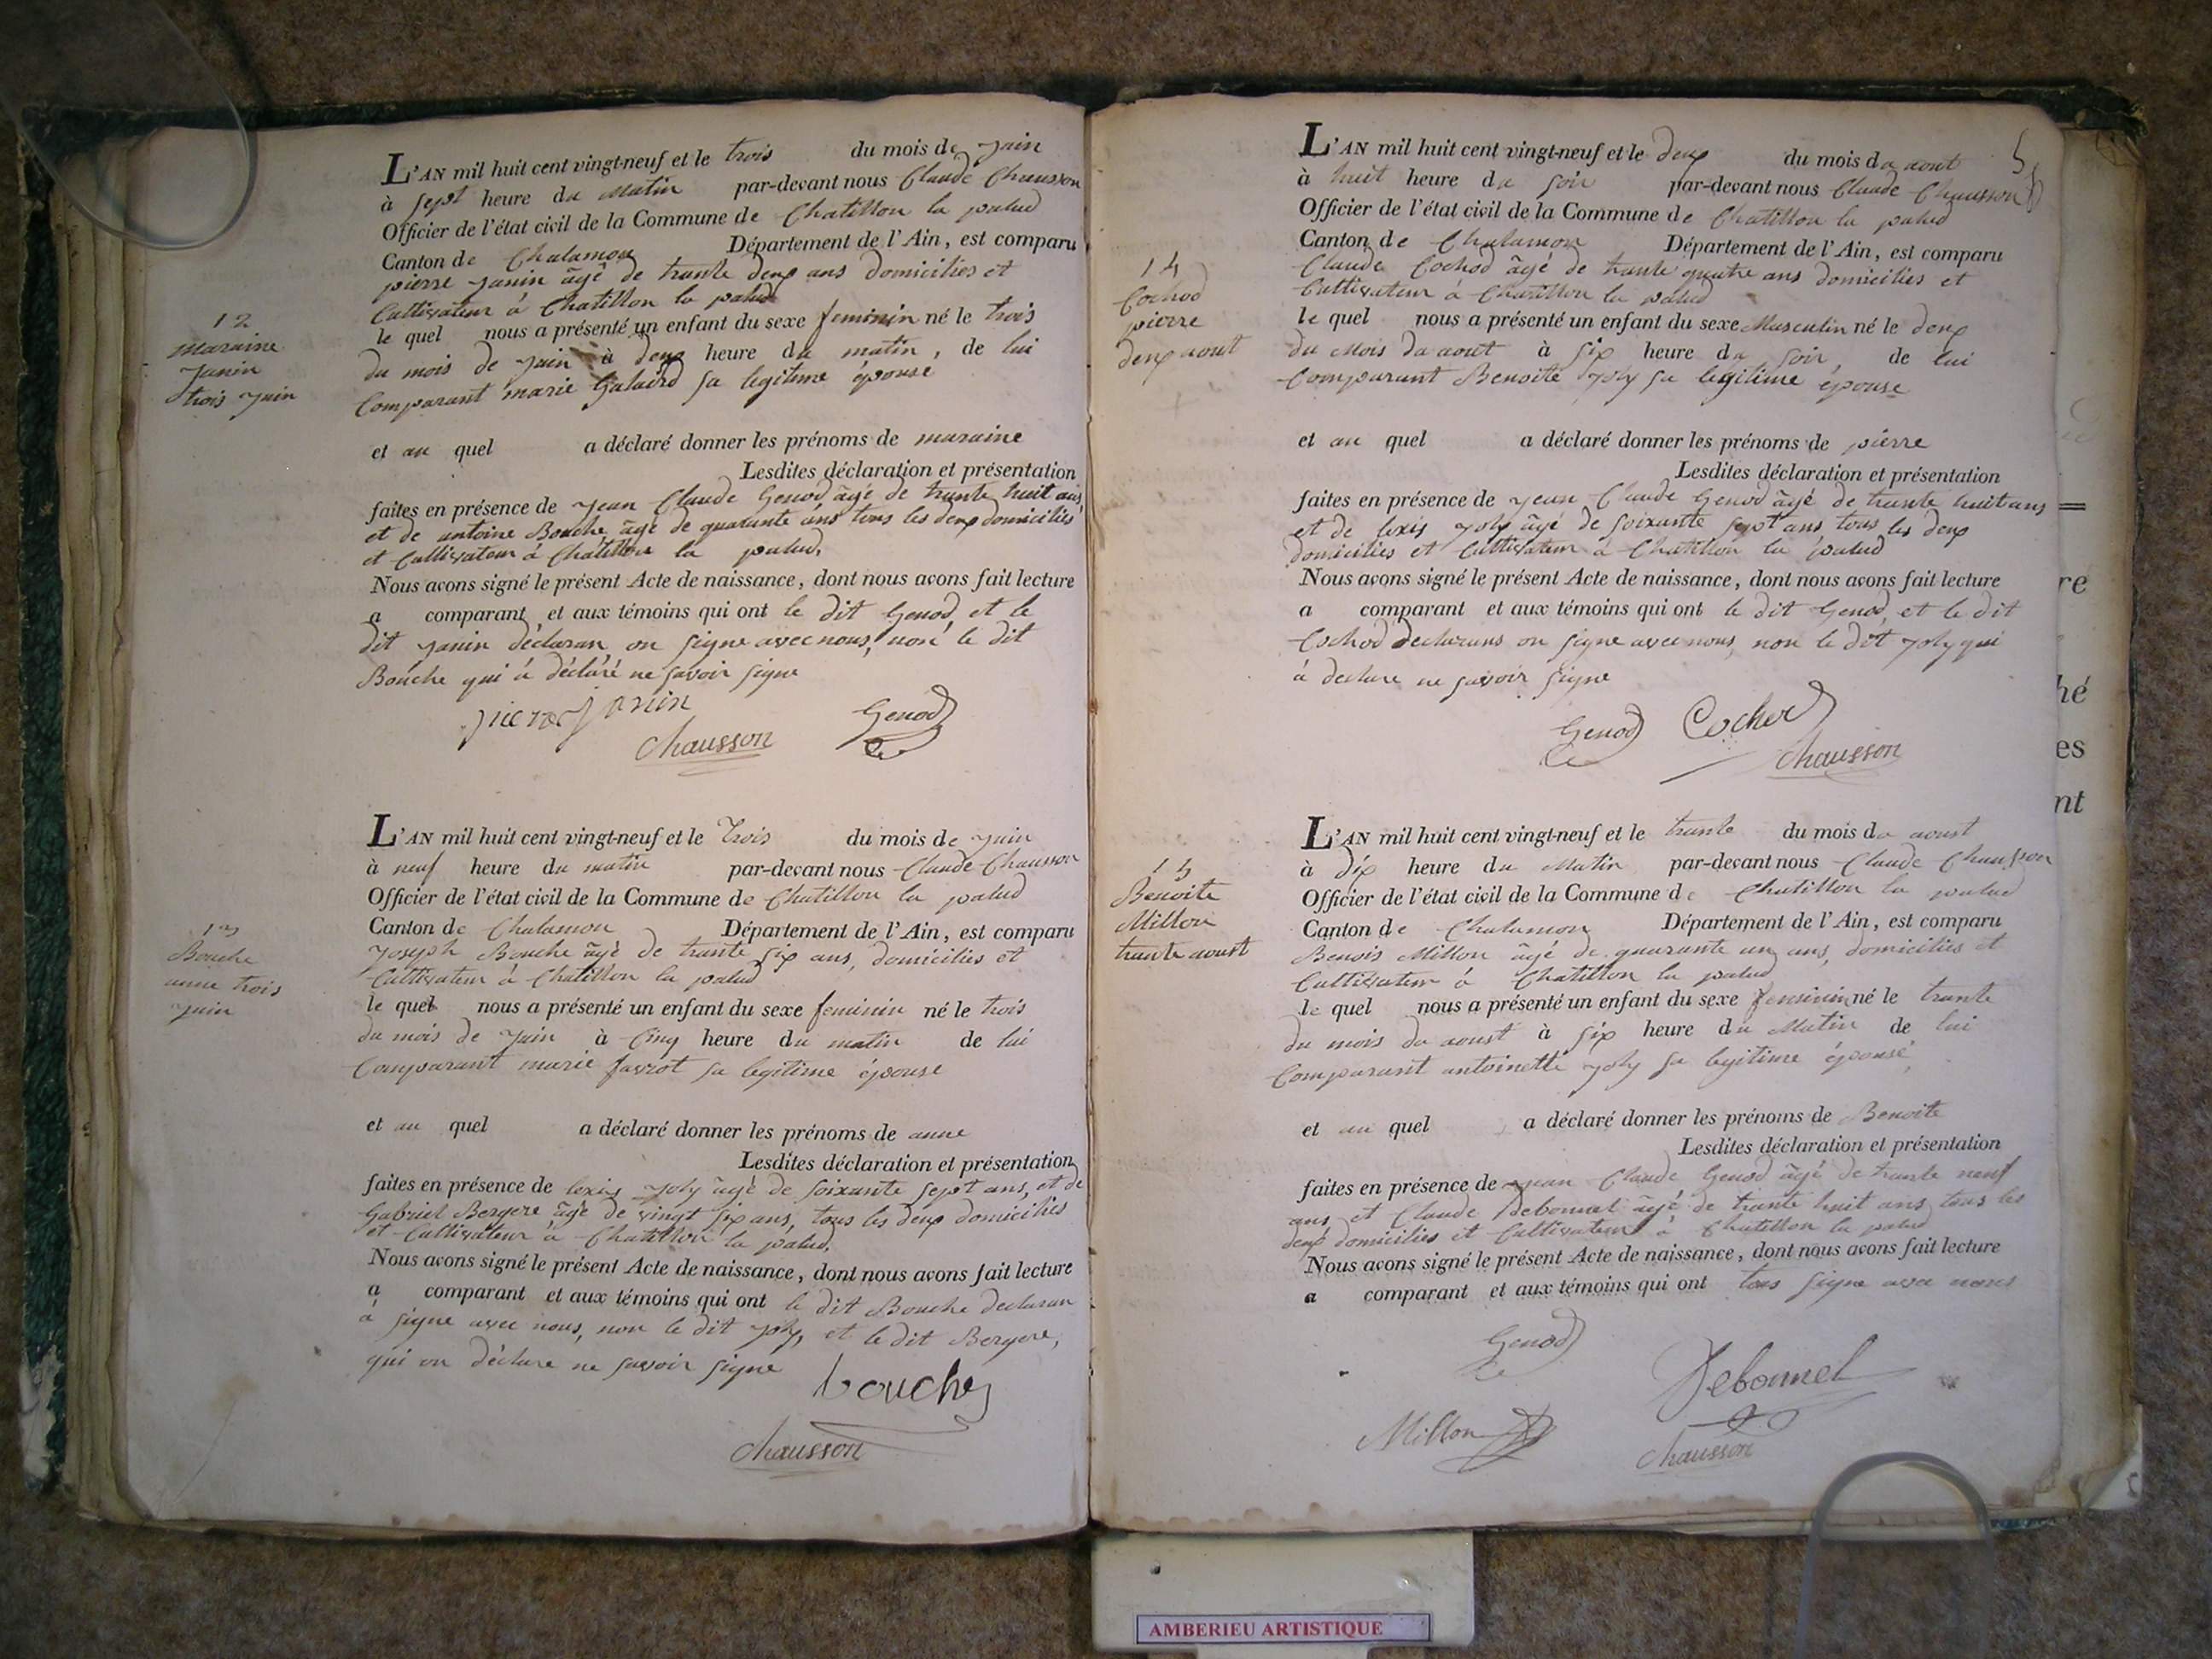 12
maraine
Janin
trois juin
L'AN mil huit cent vingt-neuf et le trois du mois de juin
à sept heure du matin par-devant nous Claude Chausson
Officier de l'état civil de la Commune de Chatillon la palud
Canton de Chalamon Département de l'Ain, est comparu
pierre janin âgé de trante deux ans domicilies et
Cultivateur à Chatillon la palud
le quel nous a présenté un enfant du sexe feminin né le trois
du mois de juin à deux heure du matin, de lui
Comparant marie Galaird sa legitime épouse
et au quel a déclaré donner les prénoms de maraine
Lesdites déclaration et présentation
faites en présence de jean Claude Genod âgé de trante huit ans
et de antoine Bouche âgé de quarante ans tous les deux domiciliés
et Cultivateur à Chatillon la palud,
Nous avons signé le présent Acte de naissance, dont nous avons fait lecture
a comparant et aux témoins qui ont le dit Genod, et le
dit janin déclaran on signe avec nous, non le dit
Bouche qui à déclaré ne savoir signe
pierre janin
Chausson Genod
13
Bouche
anne trois
juin
L'AN mil huit cent vingt-neuf et le trois du mois de juin
à neuf heure du matin par-devant nous Claude Chausson
Officier de l'état civil de la Commune de Chatillon la palud
Canton de Chalamon Département de l'Ain, est comparu
joseph Bouche âgé de trante six ans, domicilies et
Cultivateur à Chatillon la palud
le quel nous a présenté un enfant du sexe feminin né le trois
du mois de juin à Cinq heure du matin de lui
Comparant marie favrot sa legitime épouse
et au quel a déclaré donner les prénoms de anne
Lesdites déclaration et présentation
faites en présence de lexis joly âgé de soixante sept ans, et de
Gabriel Bergere âgé de vingt six ans, tous les deux domiciliés
et Cultivateur à Chatillon la palud,
Nous avons signé le présent Acte de naissance, dont nous avons fait lecture
a comparant et aux témoins qui ont le dit Bouche declaran
à signe avec nous, non le dit joly, et le dit Bergere,
qui on déclare ne savoir signe
bouche
Chausson
14
Cochod
pierre
deux aout
L'AN mil huit cent vingt-neuf et le deux du mois da aout
à huit heure du soir par-devant nous Claude Chausson
Officier de l'état civil de la Commune de Chatillon la palud
Canton de Chalamon Département de l'Ain, est comparu
Claude Cochod âgé de trante quatre ans domicilies et
Cultivateur à Chatillon la palud
le quel nous a présenté un enfant du sexe Masculin né le deux
du Mois da aout à six heure du soir, de lui
Comparant Benoite joly sa legitime épouse
et au quel a déclaré donner les prénoms de pierre
Lesdites déclaration et présentation
faites en présence de jean Claude Genod âgé de trante huit ans
et de lexis joly âgé de soixante sept ans, tous les deux
domicilies et Cultivateur à Chatillon la palud
Nous avons signé le présent Acte de naissance, dont nous avons fait lecture
a comparant et aux témoins qui ont le dit Genod, et le dit
Cochod declarans on signe avec nous, non le dit joly qui
à declare ne savoir signe
Genod Cochod
Chausson
15
Benoite
Millon
trante aoust
L'AN mil huit cent vingt-neuf et le trante du mois da aoust
à dix heure du Matin par-devant nous Claude Chausson
Officier de l'état civil de la Commune de Chatillon la palud
Canton de Chalamon Département de l'Ain, est comparu
Benois Millon âgé de quarante un ans, domicilies et
Cultivateur à Chatillon la palud
le quel nous a présenté un enfant du sexe feminin né le trante
du mois da aoust à six heure du Matin de lui
Comparant antoinette joly sa legitime épouse,
et au quel a déclaré donner les prénoms de Benoite
Lesdites déclaration et présentation
faites en présence de jean Claude Genod âgé de trante neuf
ans, et Claude Debonnel âgé de trante huit ans, tous les
deux domicilies et Cultivateur à Chatillon la palud
Nous avons signé le présent Acte de naissance, dont nous avons fait lecture
a comparant et aux témoins qui ont tous signe avec nous
Genod
Debonnel
Millon
Chausson
re
hé
es
nt
AMBERIEU ARTISTIQUE